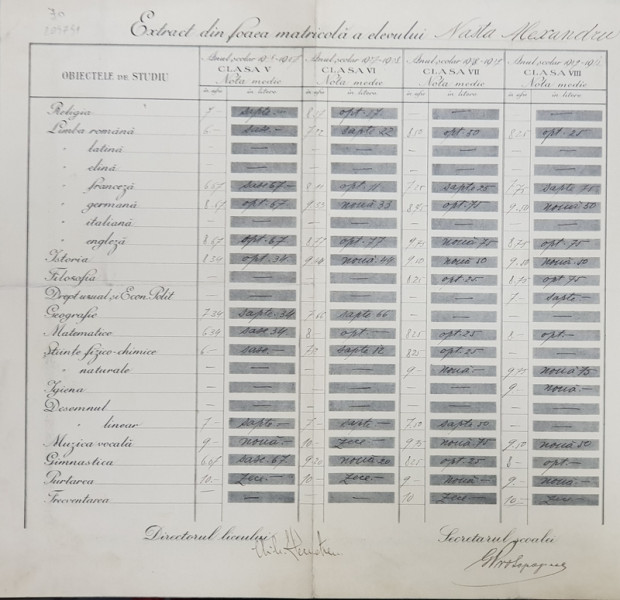 Extract din foaea matricolă a elevului Nasta Alexandru
OBIECTELE DE STUDIU Anul școlar Anul școlar Anul școlar Anul școlar
CLASA V CLASA VI CLASA VII CLASA VIII
Nota medie Nota medie Nota medie Nota medie
în cifre în litere în cifre în litere în cifre în litere în cifre în litere
Religia 7 - șapte.- opt. 17. — —
Limba română 6 - șase.- șapte 22 8.20 opt 20 8.25 opt. 25
" latină — — — —
" elină — — — —
" franceză 6.67 șase 67 8.11 opt. 11 7.25 șapte 25 7.75 șapte 75
" germană 8.67 opt. 67 9.33 nouă 33 8.75 opt. 75 9.50 nouă 50
" italiană — — — —
" engleză 8.67 opt. 67 8.77 opt. 77 9.75 nouă 75 8.75 opt. 75
Istoria 8.34 opt. 34 9.44 nouă 44 9.10 nouă 10 9.10 nouă 10
Filosofia — — 8.25 opt. 25 8.75 opt 75
Drept uzual și Econ. Polit — — — 7 șapte.-
Geografie 7.34 șapte 34 7.66 șapte 66 — —
Matematice 6.34 șase 34 8 - opt.- 8.25 opt. 25 8 - opt.-
Științe fizico-chimice 6 - șase.- șapte 8.25 opt. 25 —
" naturale — — 9 - nouă.- 9.75 nouă 75
Igiena — — — 9 nouă.-
Desemnul — — — —
" linear 7 - șapte.- 7 - șapte.- 7.50 șapte 50 —
Muzica vocală 9 - nouă.- 10.- zece.- 9.75 nouă 75 9.50 nouă 50
Gimnastica 6.67 șase. 67 9.20 nouă 20 8.25 opt. 25 8 - opt.-
Purtarea 10.- zece.- 10 - zece.- 9 - nouă.- 9 - nouă.-
Frecventarea — — 10 zece.- 10.- zece.-
Directorul liceului Secretarul școalii